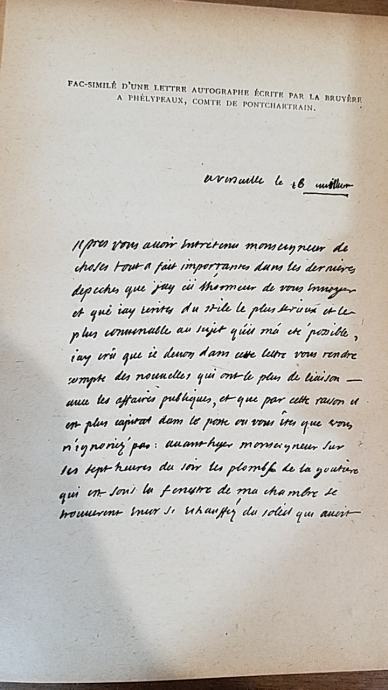 FAC-SIMILÉ D'UNE LETTRE AUTOGRAPHE ÉCRITE PAR LA BRUYÈRE
A PHÉLYPEAUX, COMTE DE PONTCHARTRAIN.
a versaille le 16
Apres vous auoir entretenu monseigneur de
choses tout a fait importantes dans les dernieres
depeches que jay eü lhonneur de vous enuoyer
et que iay ecrites du stile le plus serieux et le
plus conuenable au sujet quil ma eté possible,
iay crû que ie deuois dans cette lettre vous rendre
compte des nouvelles qui ont le plus de liaison
auec les affaires publiques, et que par cette raison il
est plus capital dans le poste ou vous êtes que vous
n'ignoriez pas: auanthyer monseigneur sur
les sept heures du soir les plombs de la goutiere
qui est sous la fenestre de ma chambre se
trouuerent encor si échauffez du soleil qui auoit